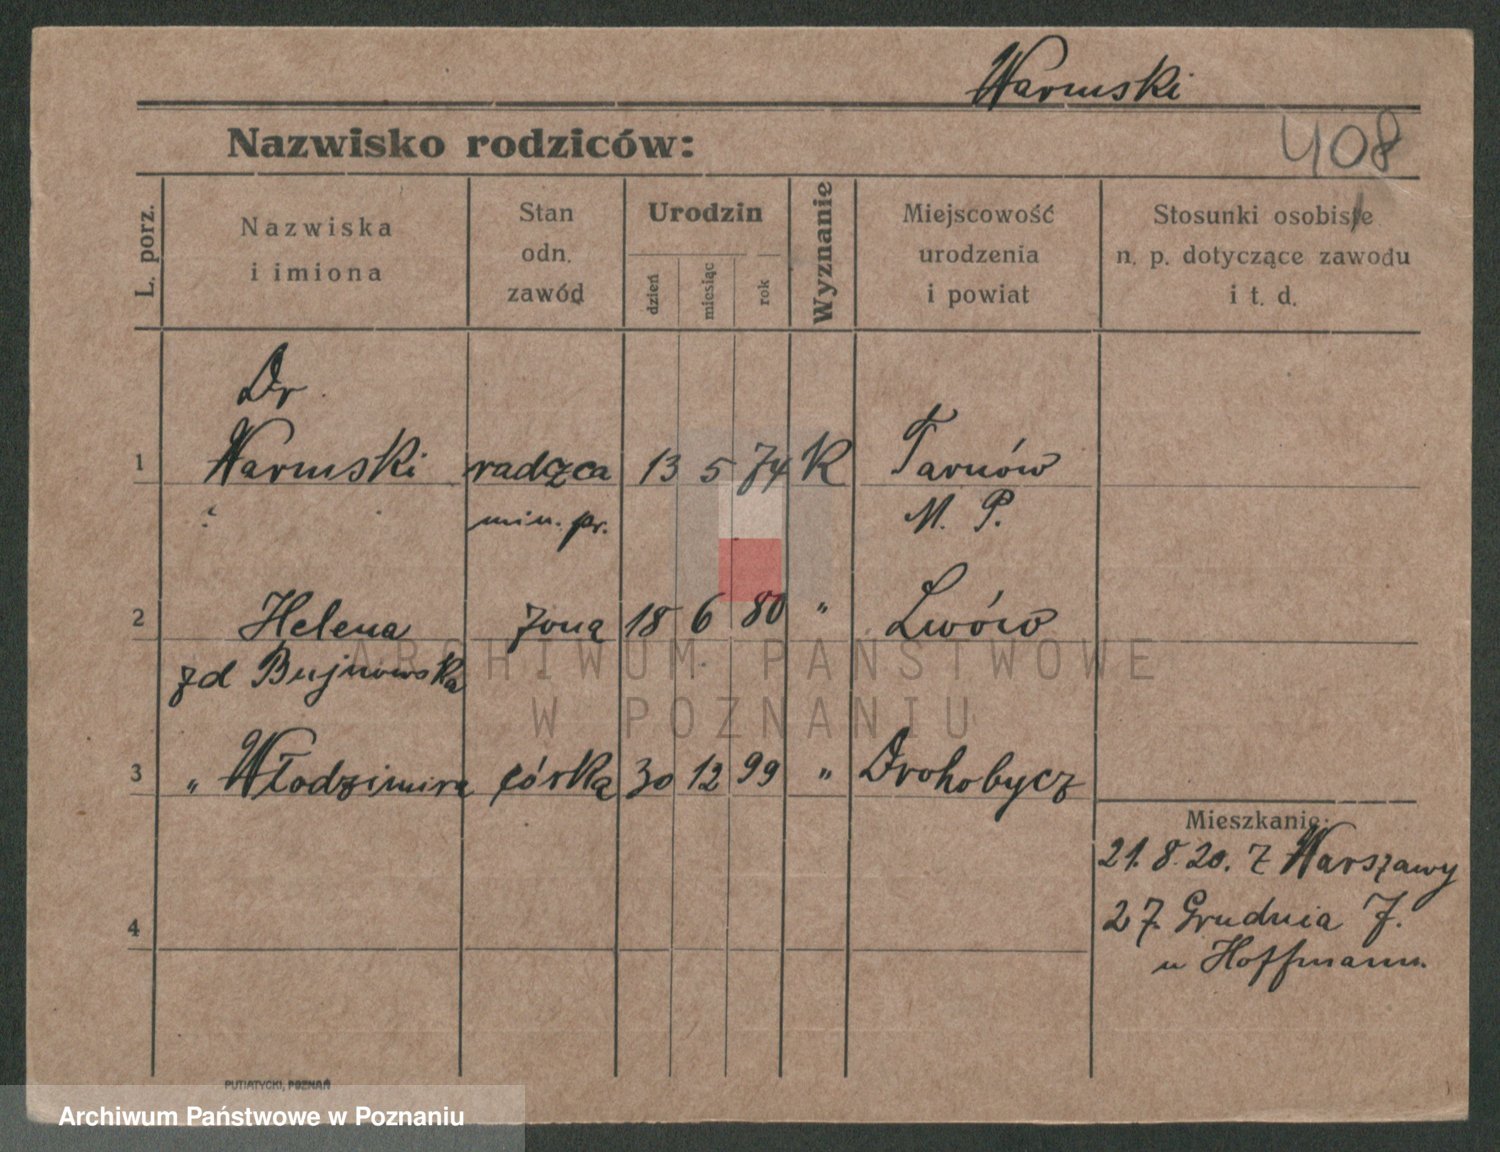 Warmski
Nazwisko rodziców:
408
L. porz.
Nazwiska
i imiona
Stan
odn.
zawód
Urodzin
dzień
miesiąc
rok
Wyznanie
Miejscowość
urodzenia
i powiat
Stosunki osobiste
n. p. dotyczące zawodu
i t. d.
Dr
1 Warmski radzca 13 5 74 K Tarnów
min. pr. M. P.
2 Helena żona 18 6 80 " Lwów
zd Bujnowska
3 " Włodzimira córka 30 12 99 " Drohobycz
Mieszkanie:
21. 8. 20. z Warszawy
27 Grudnia 7.
u Hoffmann.
4
ARCHIWUM PAŃSTWOWE
W POZNANIU
PUTIATYCKI, POZNAŃ
Archiwum Państwowe w Poznaniu